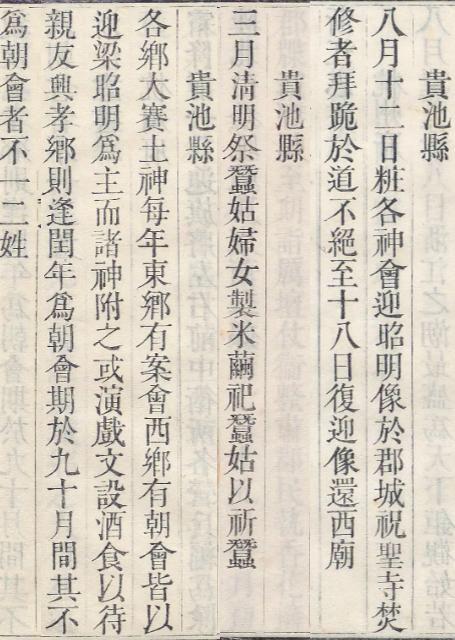 貴池縣
八月十二日粧各神會迎昭明像於郡城祝聖寺焚
修者拜跪於道不絕至十八日復迎像還西廟
貴池縣
三月清明祭蠶姑婦女製米繭祀蠶姑以祈蠶
貴池縣
各鄉大賽土神每年東鄉有案會西鄉有朝會皆以
迎梁昭明爲主而諸神附之或演戲文設酒食以待
親友興孝鄉則逢閏年爲朝會期於九十月間其不
爲朝會者不一二姓